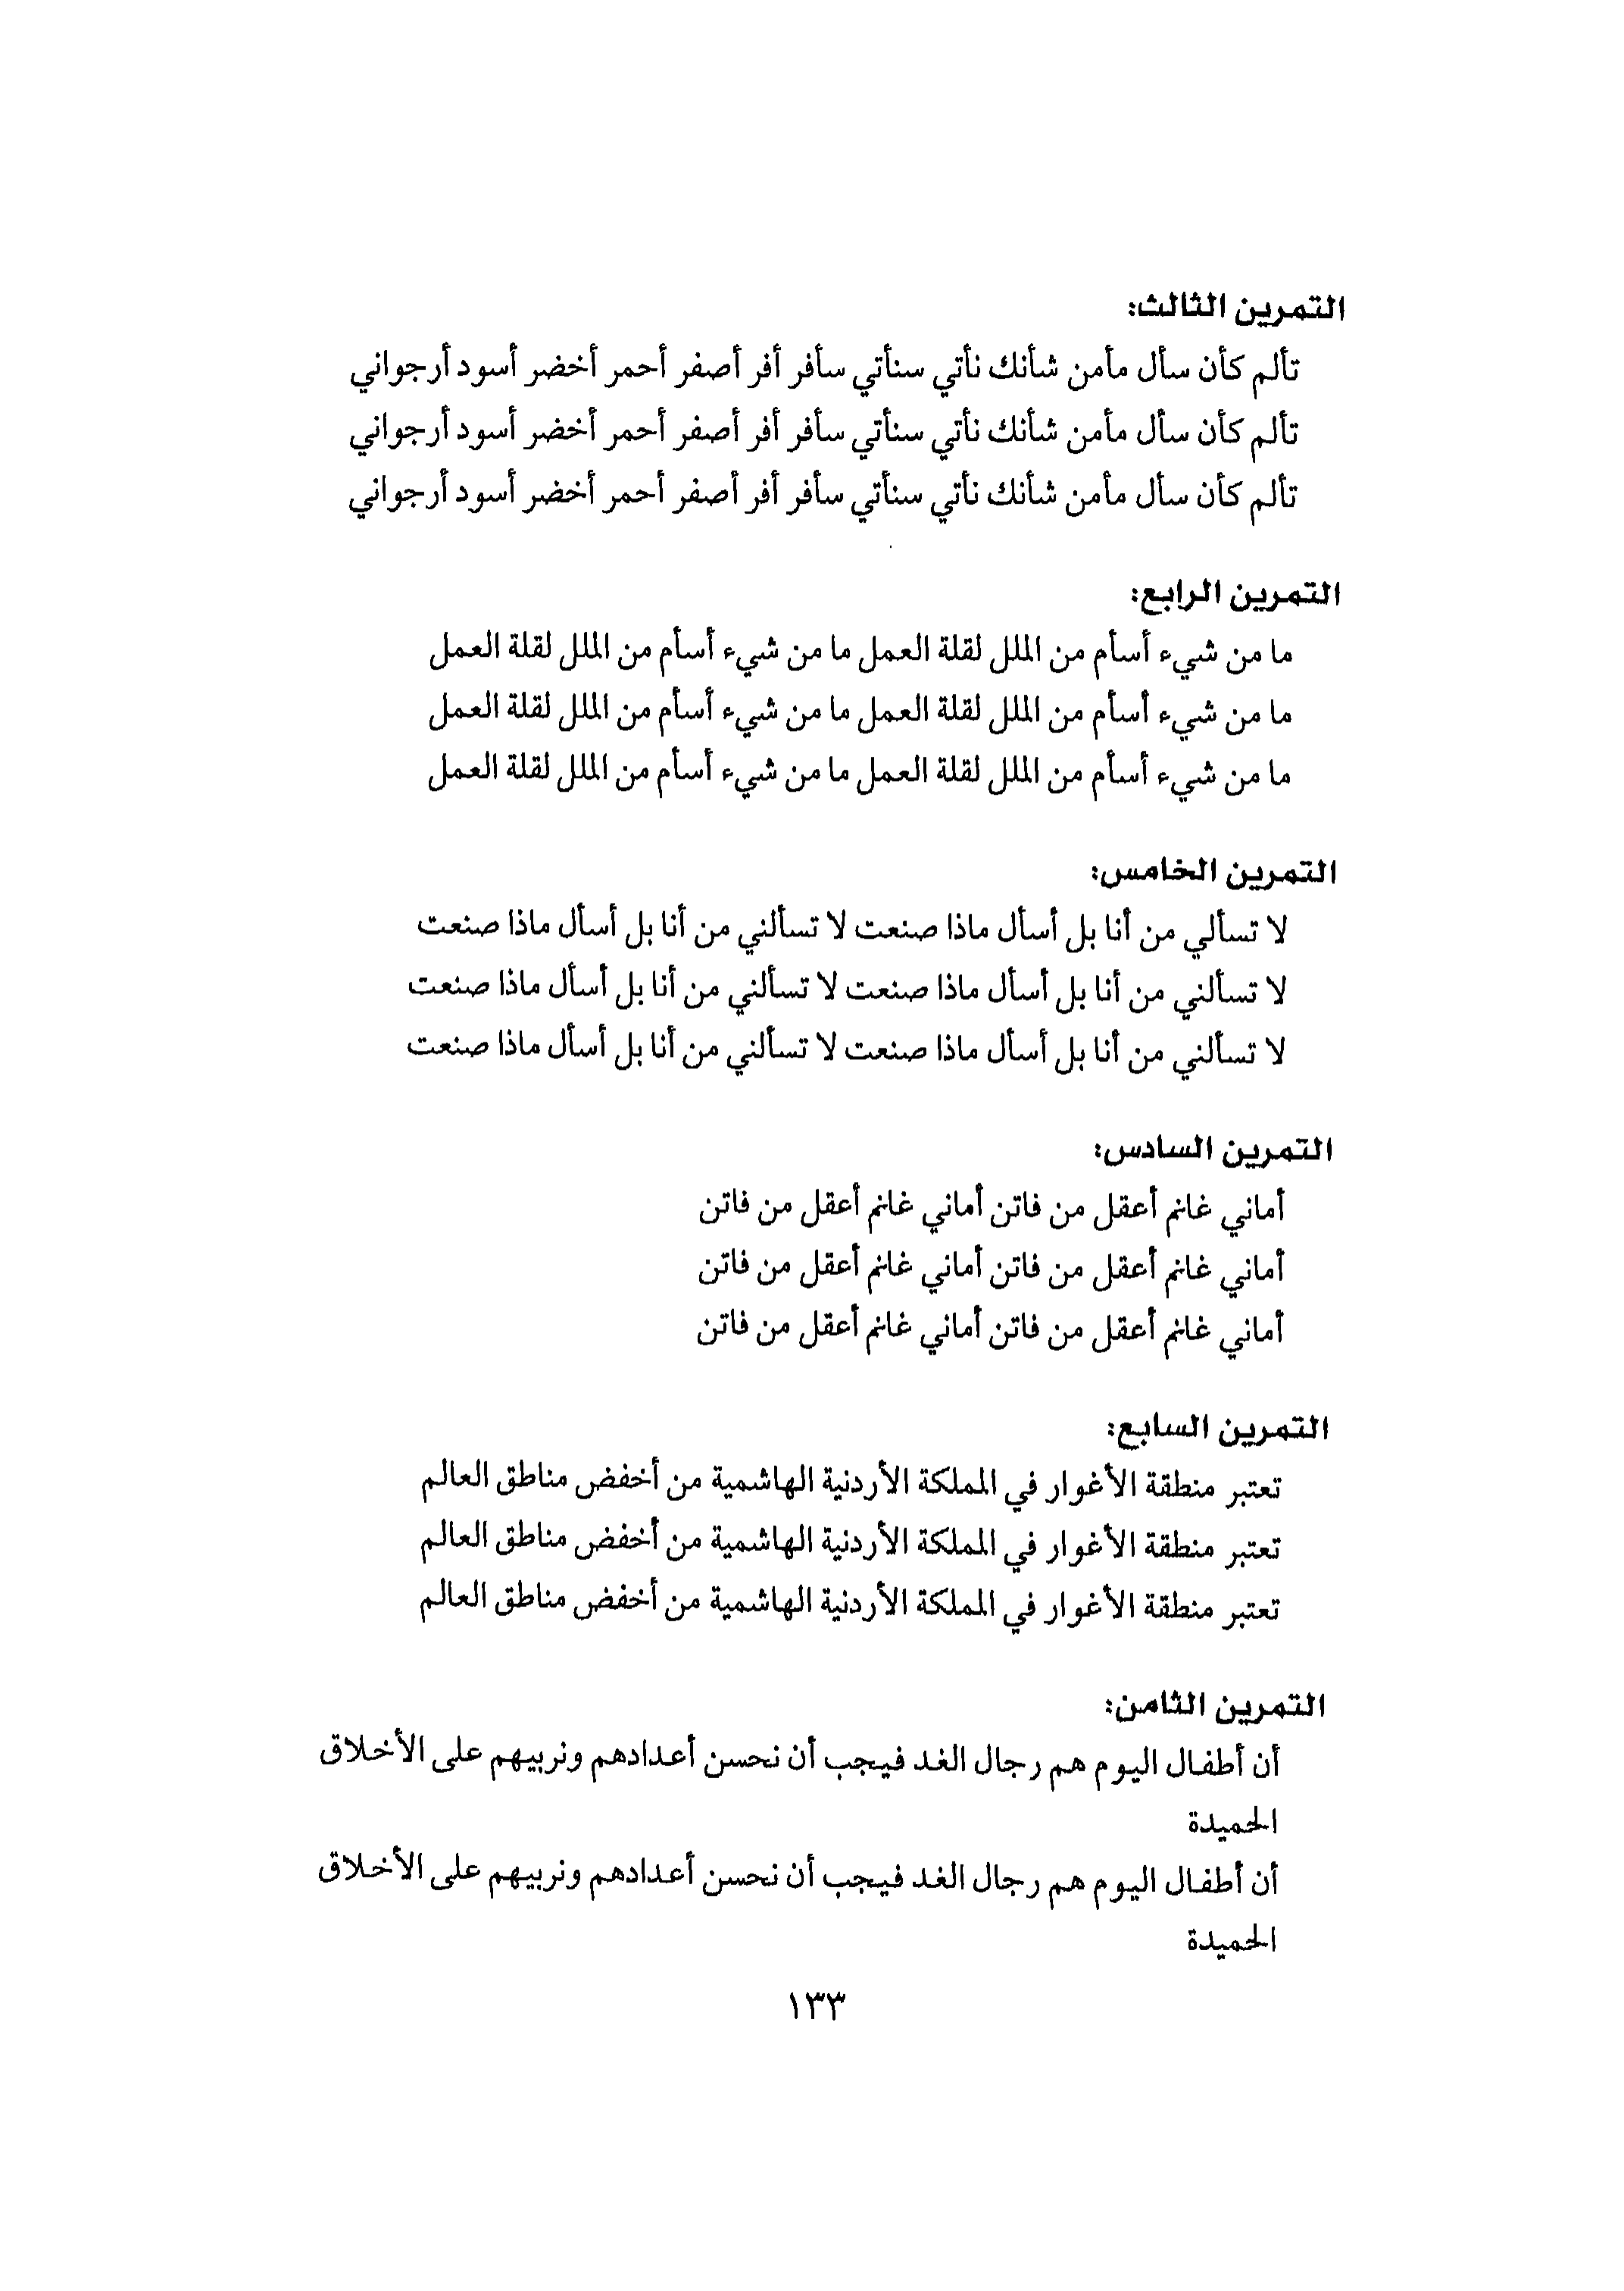 التمرين الثالث:
تألم كأن سأل مأمن شأنك نأتي سنأتي سأفر أفر أصفر أحمر أخضر أسود أرجواني
تألم كأن سأل مأمن شأنك نأتي سنأتي سأفر أفر أصفر أحمر أخضر أسود أرجواني
تألم كأن سأل مأمن شأنك نأتي سنأتي سأفر أفر أصفر أحمر أخضر أسود أرجواني
التمرين الرابع:
ما من شيء أسأم من الملل لقلة العمل ما من شيء أسأم من الملل لقلة العمل
ما من شيء أسأم من الملل لقلة العمل ما من شيء أسأم من الملل لقلة العمل
ما من شيء أسأم من الملل لقلة العمل ما من شيء أسأم من الملل لقلة العمل
التمرين الخامس:
لا تسألي من أنا بل أسأل ماذا صنعت لا تسألني من أنا بل أسأل ماذا صنعت
لا تسألني من أنا بل أسأل ماذا صنعت لا تسألني من أنا بل أسأل ماذا صنعت
لا تسألني من أنا بل أسأل ماذا صنعت لا تسألني من أنا بل أسأل ماذا صنعت
التمرين السادس:
أماني غانم أعقل من فاتن أماني غانم أعقل من فاتن
أماني غانم أعقل من فاتن أماني غانم أعقل من فاتن
أماني غانم أعقل من فاتن أماني غانم أعقل من فاتن
التمرين السابع:
تعتبر منطقة الأغوار في المملكة الأردنية الهاشمية من أخفض مناطق العالم
تعتبر منطقة الأغوار في المملكة الأردنية الهاشمية من أخفض مناطق العالم
تعتبر منطقة الأغوار في المملكة الأردنية الهاشمية من أخفض مناطق العالم
التمرين الثامن:
أن أطفال اليوم هم رجال الغد فيجب أن نحسن أعدادهم ونربيهم على الأخلاق
الحميدة
أن أطفال اليوم هم رجال الغد فيجب أن نحسن أعدادهم ونربيهم على الأخلاق
الحميدة
١٣٣